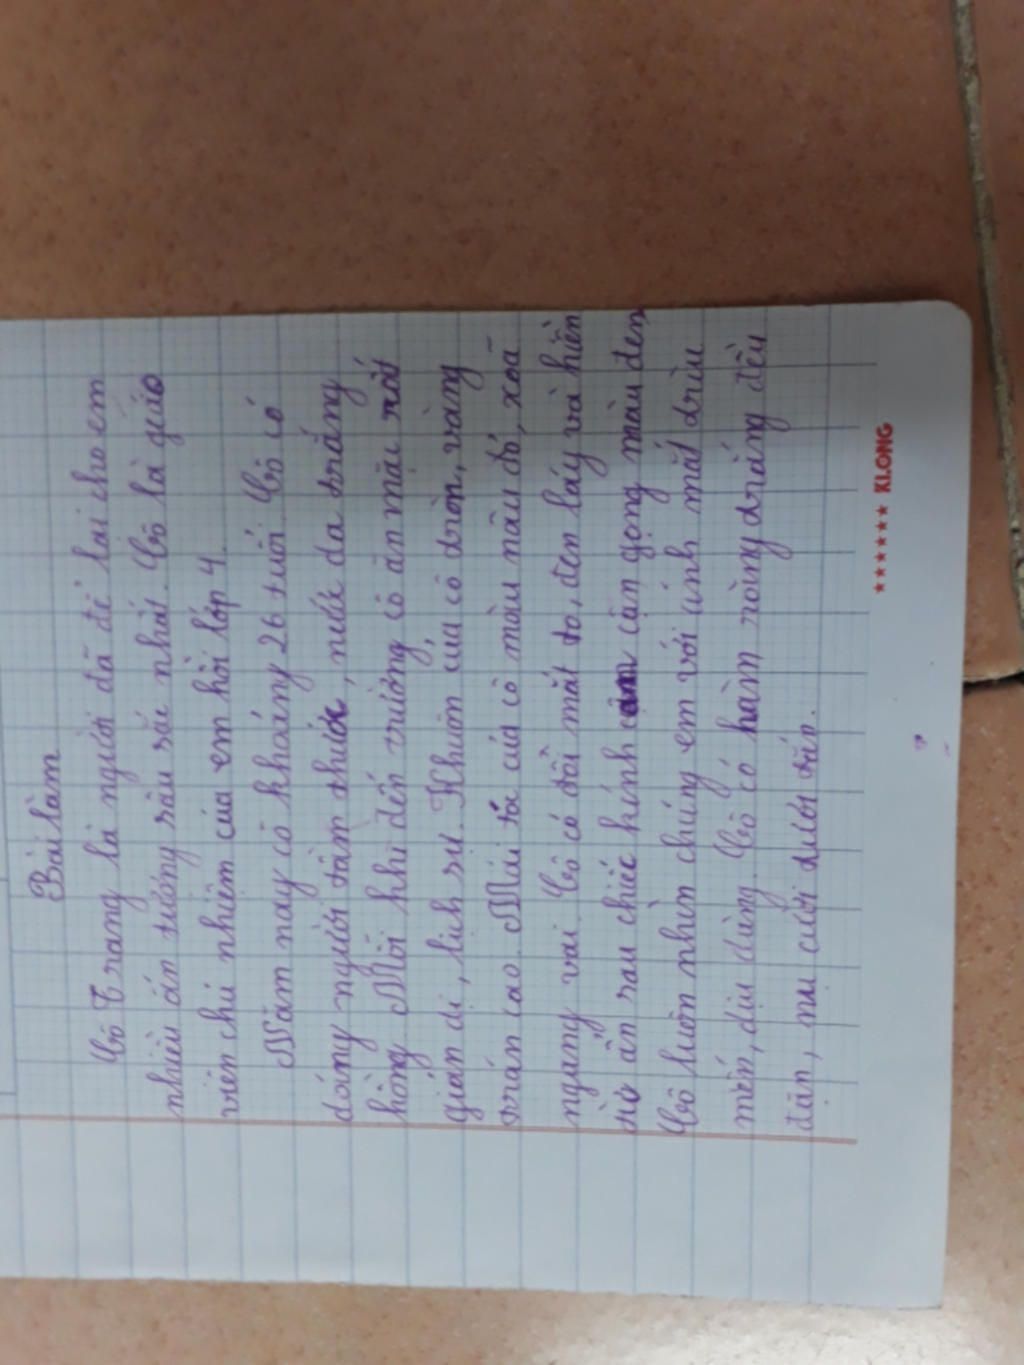 Bài làm
Cô Trang là người đã để lại cho em
nhiều ấn tượng sâu sắc nhất. Cô là giáo
viên chủ nhiệm của em hồi lớp 4.
Năm nay cô khoảng 26 tuổi. Cô có
dáng người tầm thước, nước da trắng
hồng. Mỗi khi đến trường cô ăn mặc rất
giản dị, lịch sự. Khuôn của cô tròn, vầng
trán cao. Mái tóc của cô màu nâu đỏ, xoã
ngang vai. Cô có đôi mắt to, đen láy và hiền
từ ẩn sau chiếc kính cận gọng màu đen
Cô luôn nhìn chúng em với ánh mắt trìu
mến, dịu dàng. Cô có hàm răng trắng đều
đặn, nụ cười tươi tắn.
★★★★★★ KLONG